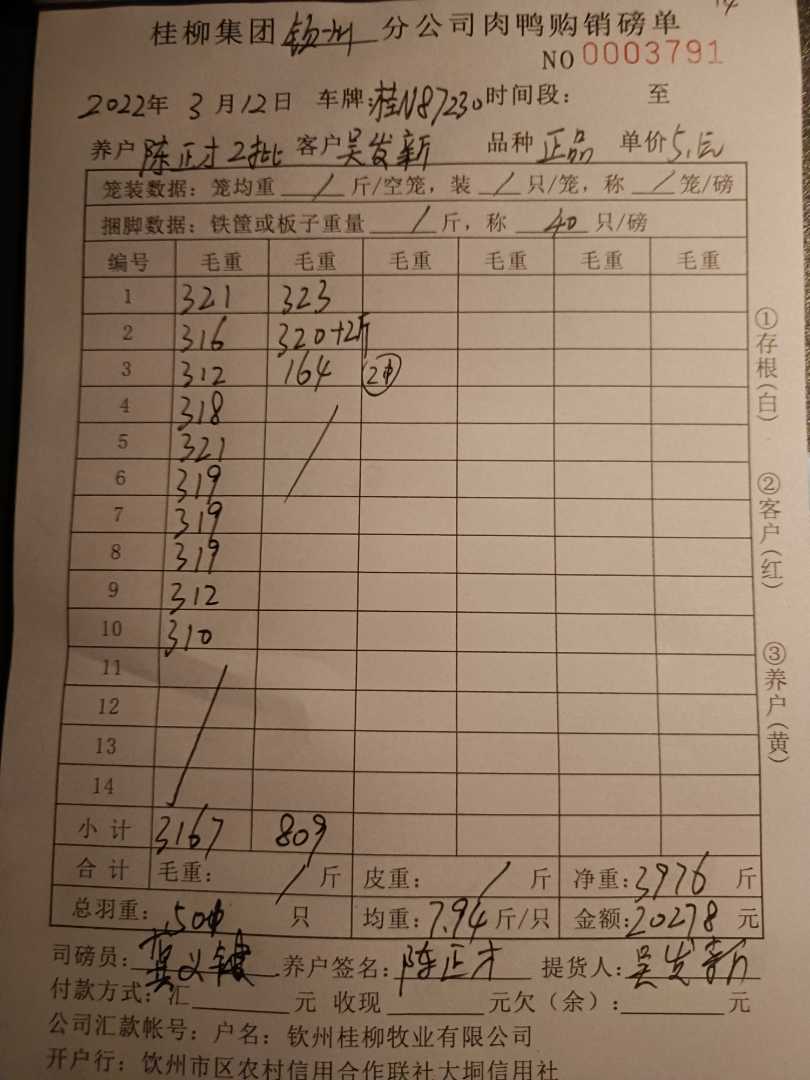 桂柳集团 钦州 分公司肉鸭购销磅单
NO 0003791
2022年 3月12日 车牌:桂N87230 时间段: 至
养户 陈正才2批 客户 吴发新 品种 正品 单价 5.1元
笼装数据: 笼均重 / 斤/空笼, 装 / 只/笼, 称 / 笼/磅
捆脚数据: 铁筐或板子重量 / 斤, 称 40 只/磅
编号 毛重 毛重 毛重 毛重 毛重 毛重
1 321 323
2 316 320+2斤
3 312 164
4 318 /
5 321
6 319
7 319
8 319
9 312
10 310
11 /
12
13
14
小计 3167 809
合计 毛重: / 斤 皮重: / 斤 净重:3976 斤
总羽重: 只 均重:7.94 斤/只 金额:20278 元
司磅员: 养户签名:陈正才 提货人:吴发新
付款方式:汇 元 收现 元欠(余): 元
公司汇款帐号: 户名: 钦州桂柳牧业有限公司
开户行: 钦州市区农村信用合作联社大垌信用社
①存根(白)
②客户(红)
③养户(黄)